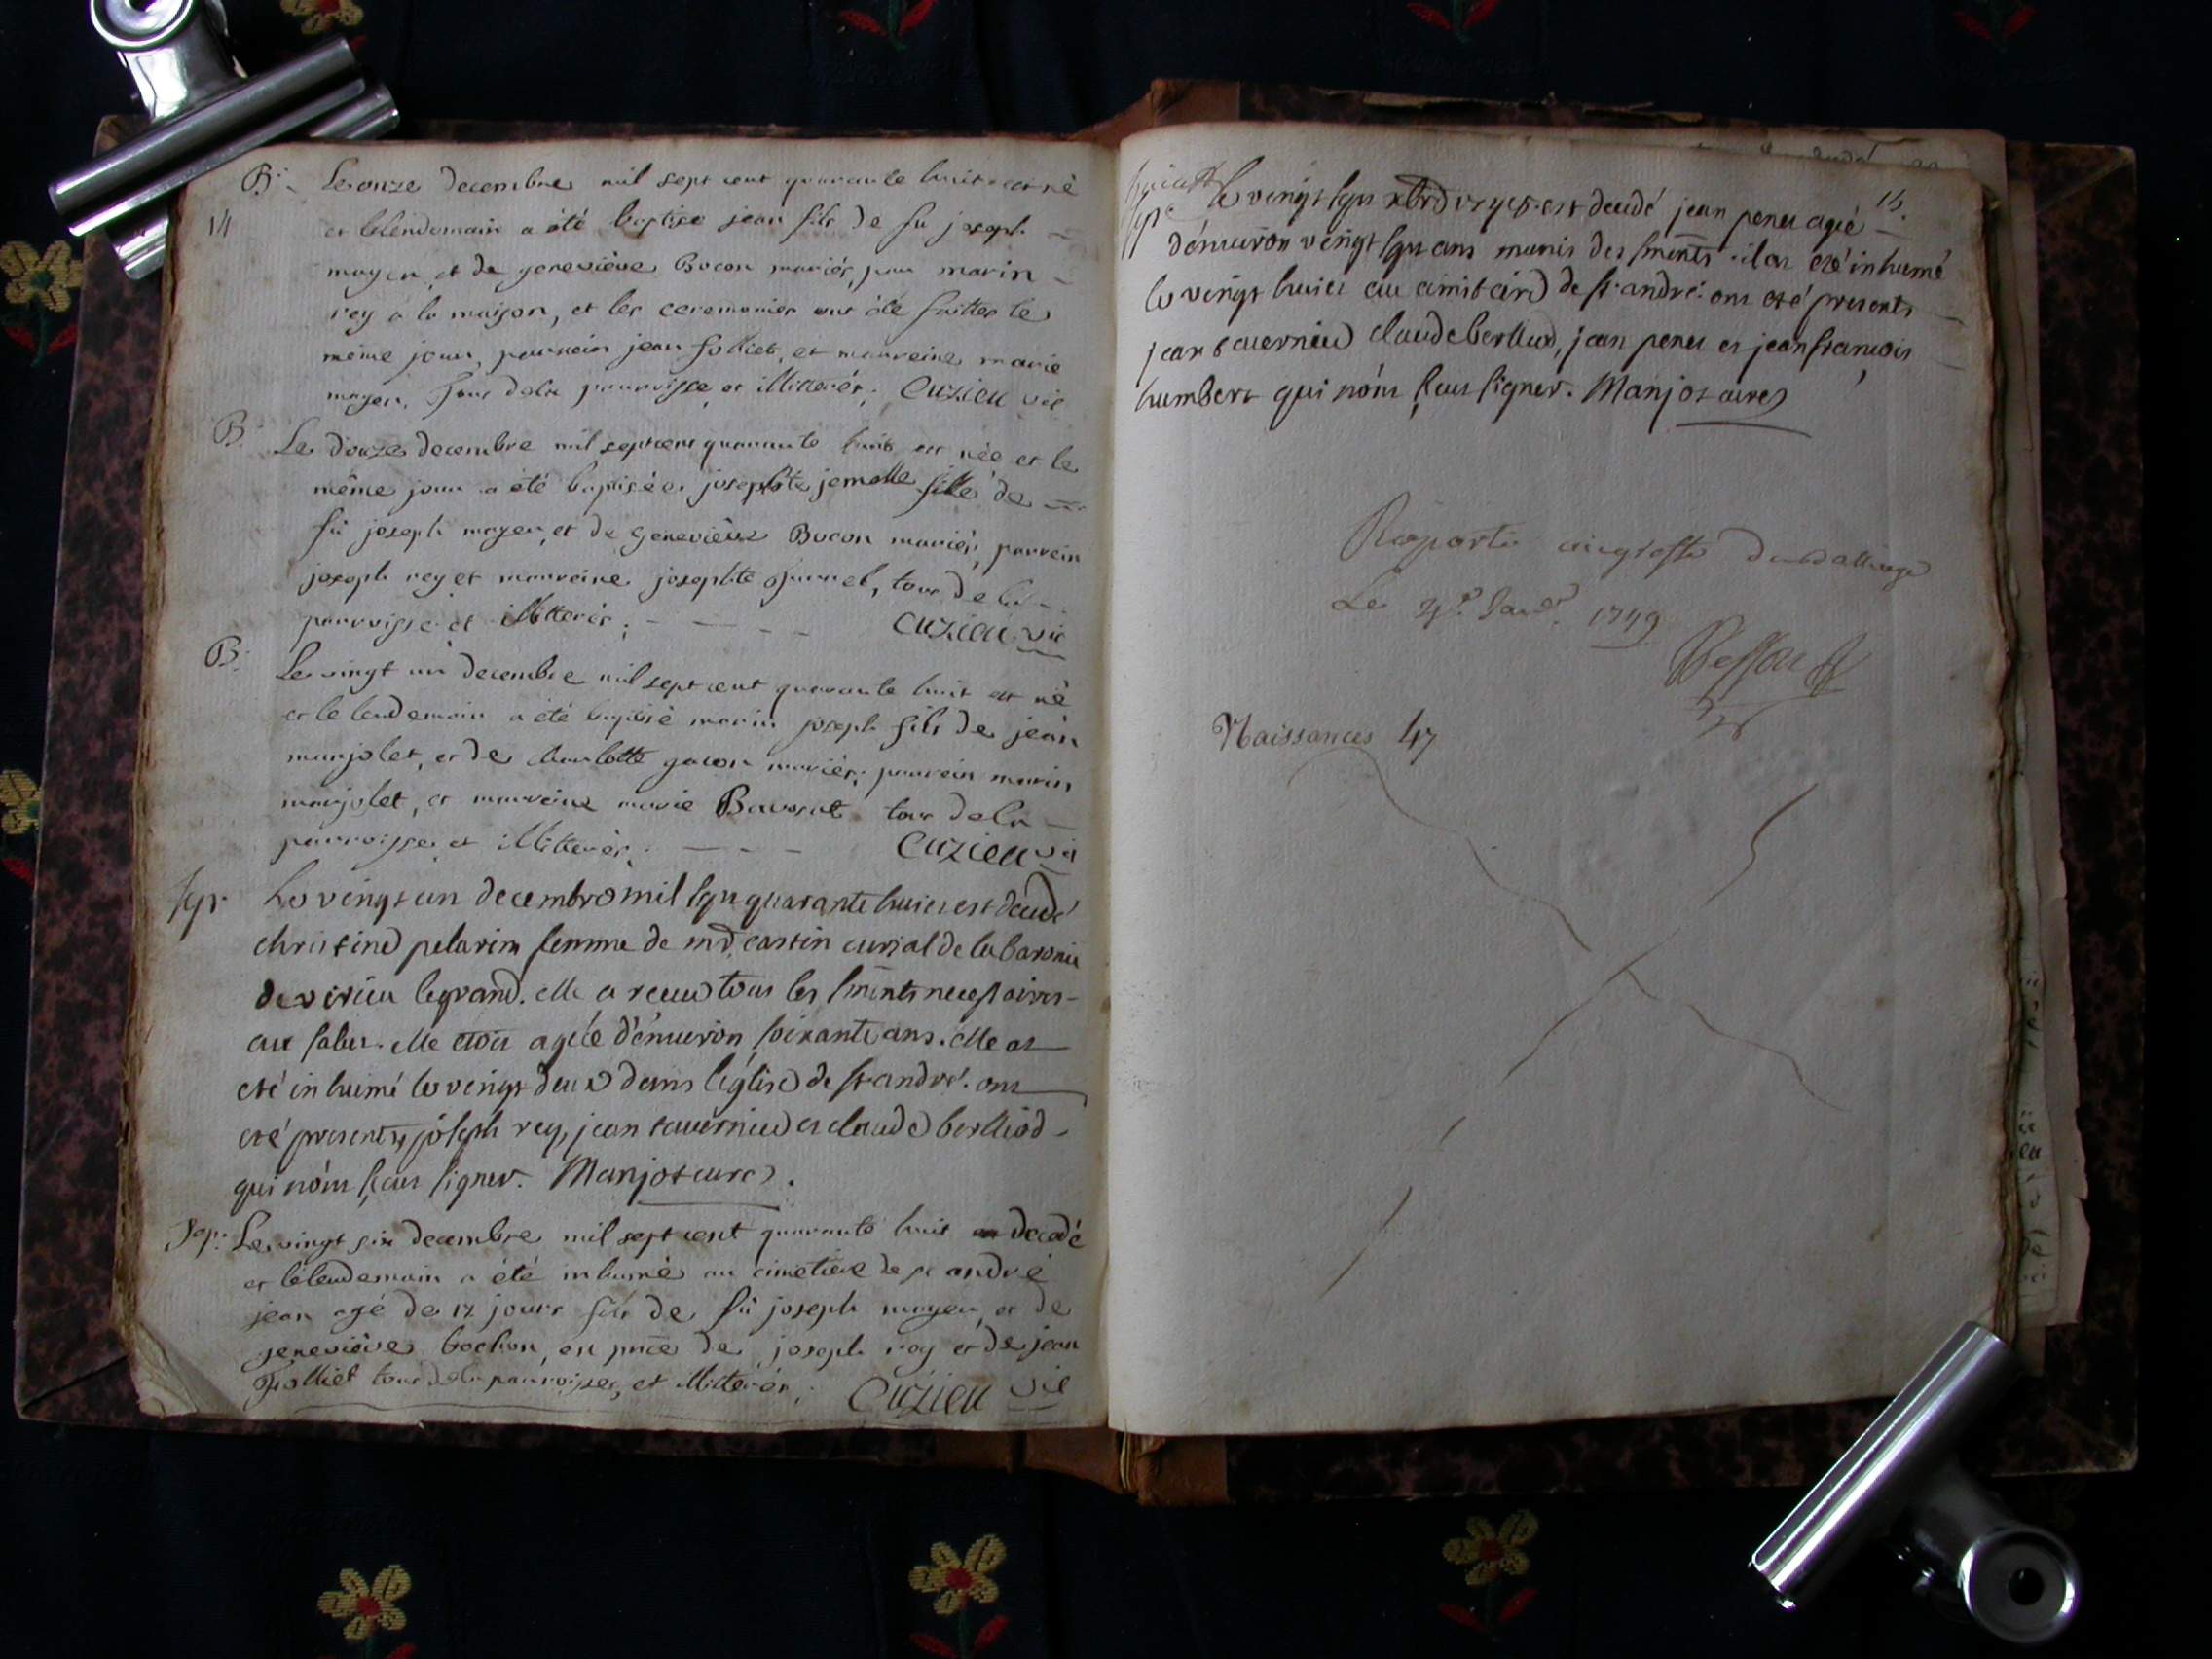 B. Le onze decembre mil sept cent quarante huit est né
14 et le lendemain a été baptisé jean fils de fu joseph
mayen, et de geneviève Bocon mariés, par marin
rey a la maison, et les ceremonies ont été faittes le
même jour, parrain jean folliet, et marreine marie
mayen, tous de la parroisse et illitterés; Cuzieu vic
B. Le douze decembre mil sept cent quarante huit est née et le
même jour a été baptisée josephte jemelle fille de
fû joseph mayen, et de Geneviève Bocon mariés, parrein
joseph rey et marreine josephte, tous de la
parroisse et illitterés; Cuzieu vic
B. Le vingt un decembre mil sept cent quarante huit est né
et le lendemain a été baptisé marin joseph fils de jean
marjolet, et de charlotte gocon mariés; parrein marin
marjolet, et marreine marie Bavosat tous de la
parroisse et illitterés; Cuzieu vic
sep. Le vingt un decembre mil sept quarante huict est decedé
christine pelarin femme de md. castin curial de la baronie
de virieu le grand. elle a receu tous les smēnts necessaires
au salut. elle etoit agée d'énuiron soixante ans. elle at
eté inhumé le vingt deux dans l'église de st andré. ont
eté presents joseph rey, jean tauernier et claude berlliod
qui n'ónt sceut signer. Manjot curé.
Sep. Le vingt six decembre mil sept cent quarante huit decedé
et le lendemain a été inhumé au cimetiere de st andré
jean agé de 12 jours fils de fû joseph mayen, et de
geneviève bochon, en pnce de joseph rey et de jean
folliet tous de la parroisse, et illitterés; Cuzieu vic
15.
sep. le vingt sept xbre 1748 est decedé jean penet agée
d'énuiron vingt sept ans munis des smēnts. il at eté inhumé
le vingt huict au cimitaire de st andré. ont eté presents
jean tauernier claude berlliod, jean penet et jean françois
humbert qui n'ónt sceut signer. Manjot curé
Raporté au greffe du
Le 1749
Naissances 47